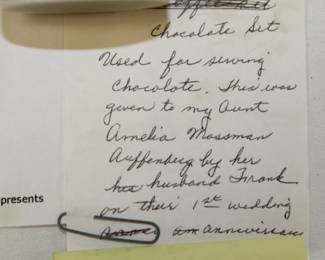 Coffee Set
Chocolate Set
Used for serving
Chocolate. This was
given to my Aunt
Amelia Mossman
Auffenberg by her
her husband Frank
on their 1st wedding
an anniversary
presents